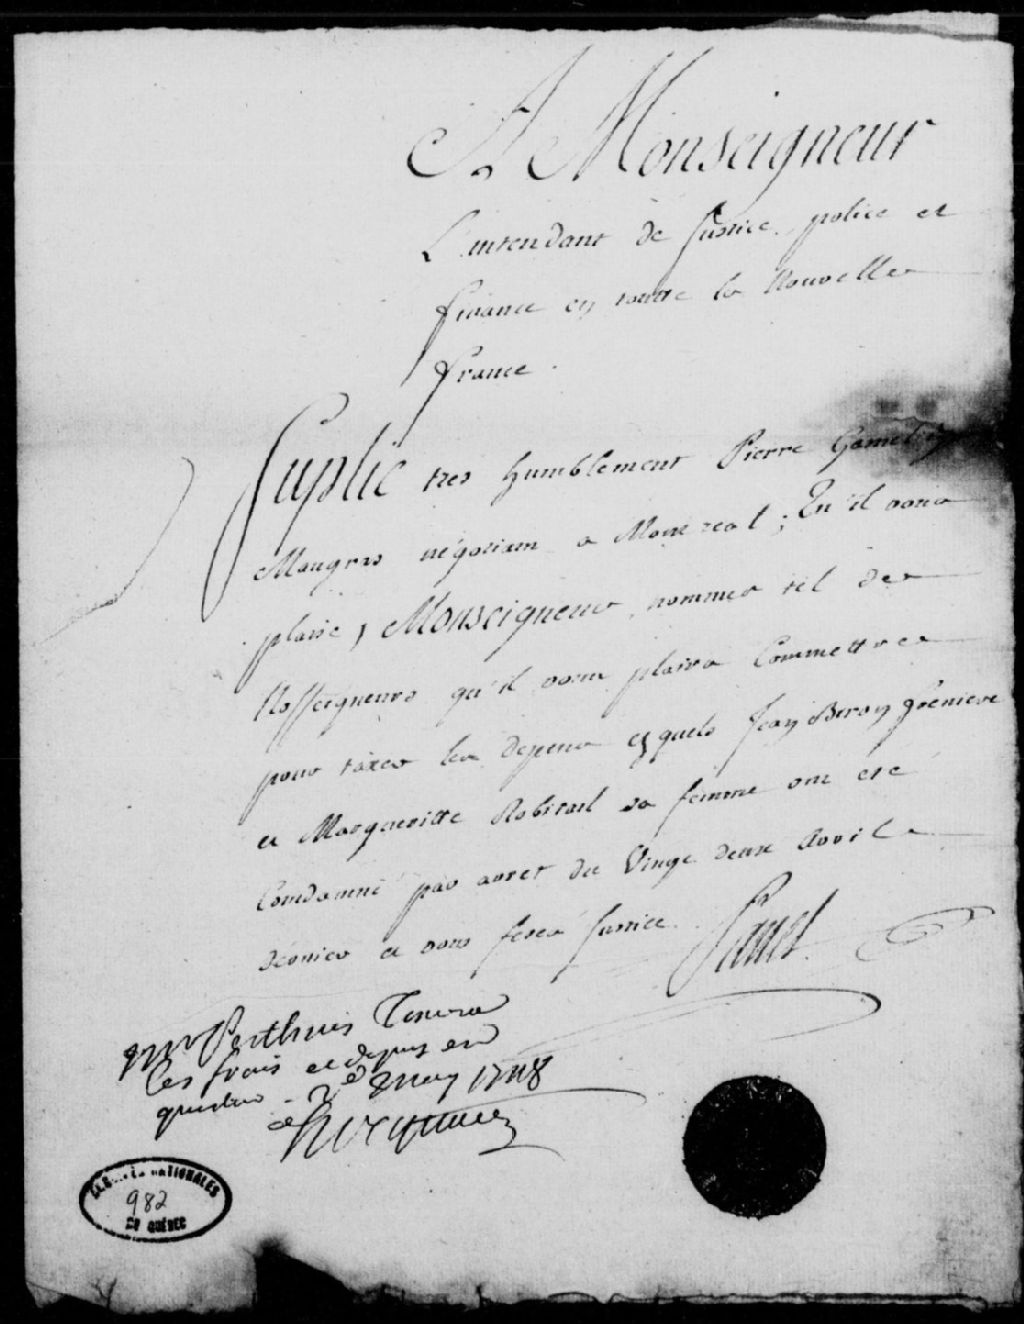 A Monseigneur
L'intendant de Justice, police et
finance en toutte la Nouvelle
france.
Suplie tres humblement Pierre Gamelin
Maugras négotiant a Montreal; Qu'il vous
plaise, Monseigneur, nommer tel de
Nosseigneurs qu'il vous plaira Commettre
pour taxer les depens esquels Jean Baron freniere
et Margueritte Robitail sa femme ont été
Condamné par arret du Vingt deux Avril
dernier et vous ferez Justice.
Panet
Mr Perthuis
les frais et depens en
question
ce 2e May 1748
Hocquart
ARCHIVES NATIONALES
982
DU QUÉBEC